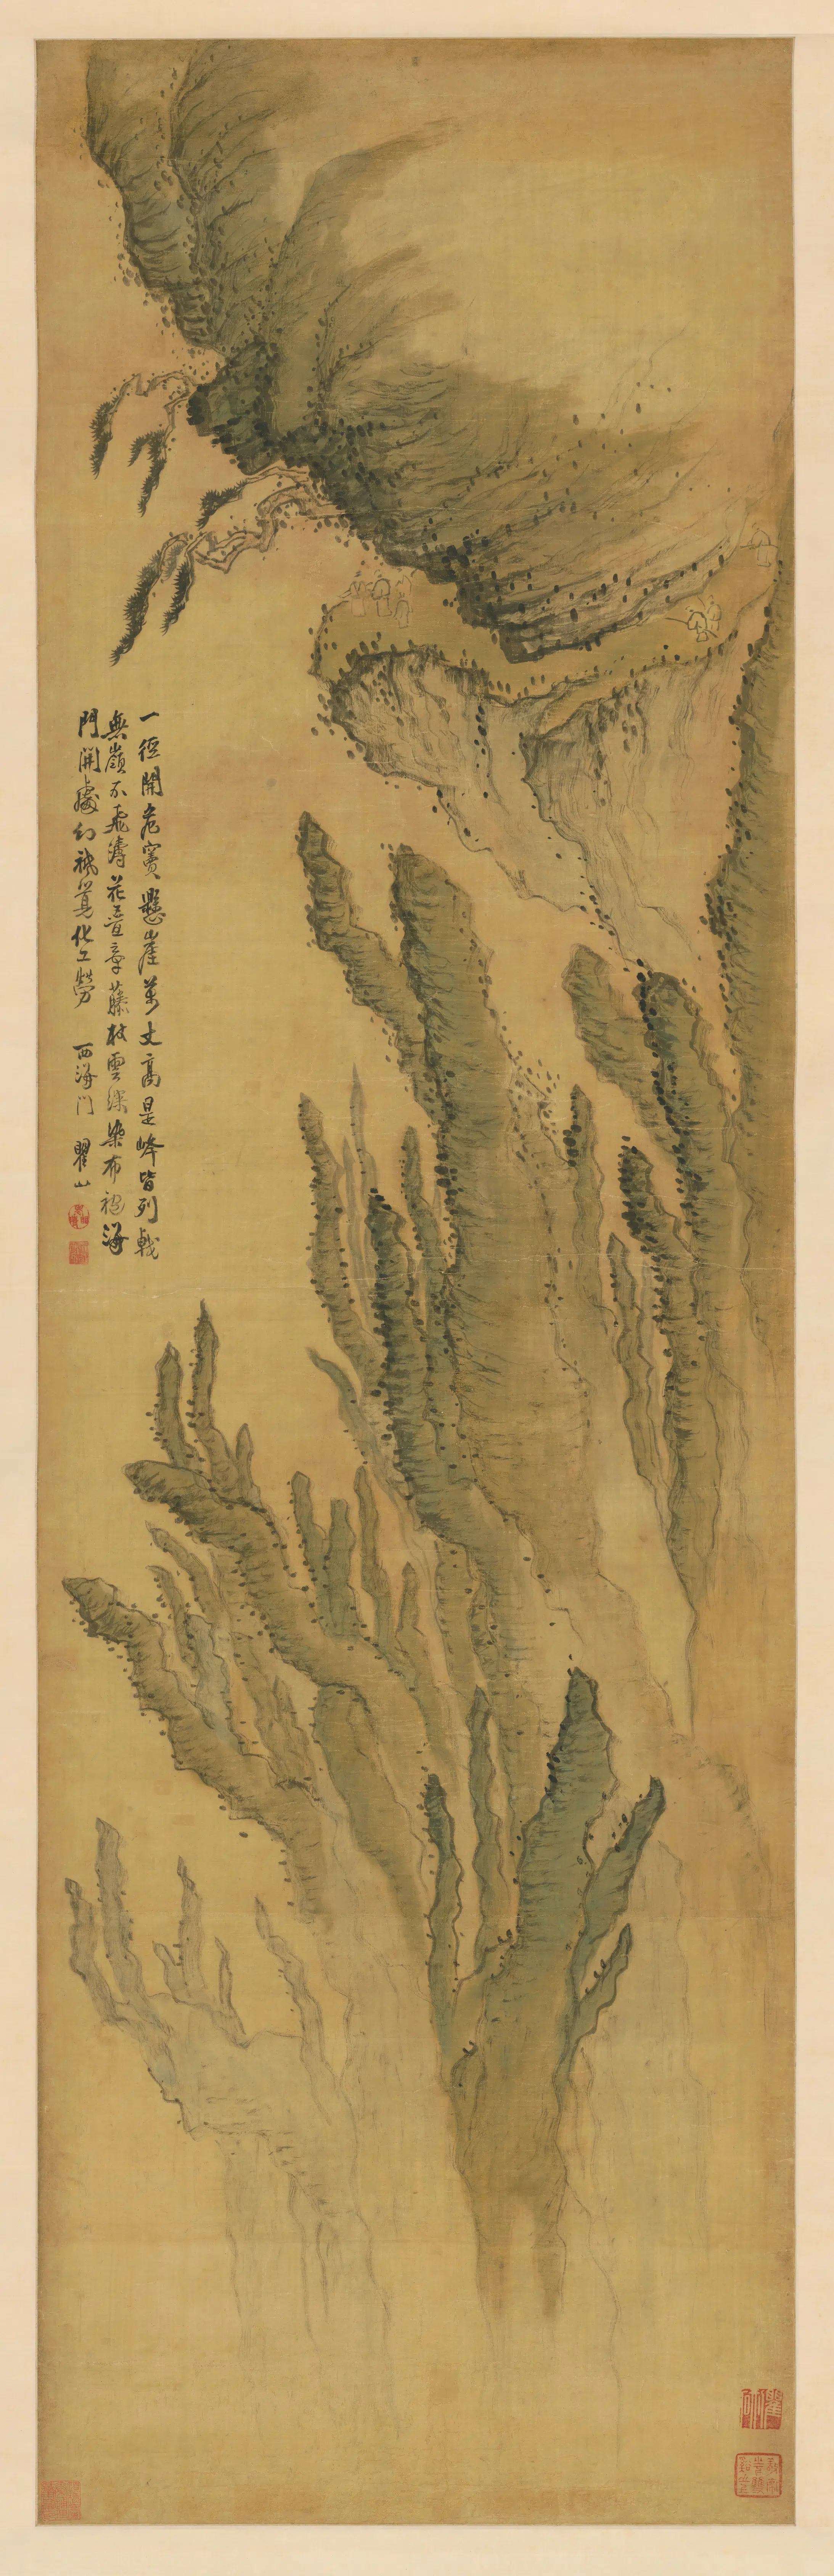 一徑開危竇懸崖萬丈高是峰皆列戟
無嶺不飛濤花牽藤杖雲深染布袍海
門開處幻祇覺化工勞 西海門 瞿山